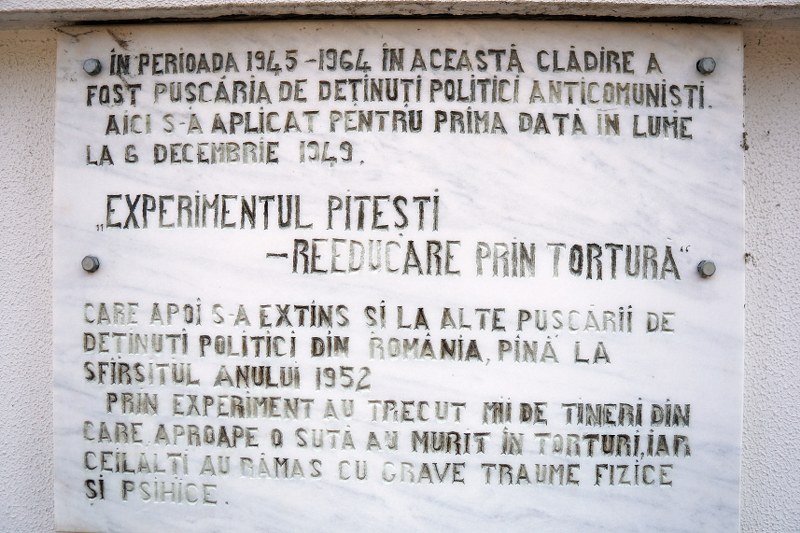 ÎN PERIOADA 1945-1964 ÎN ACEASTĂ CLĂDIRE A
FOST PUȘCĂRIA DE DEȚINUȚI POLITICI ANTICOMUNIȘTI.
AICI S-A APLICAT PENTRU PRIMA DATĂ ÎN LUME
LA 6 DECEMBRIE 1949.
„EXPERIMENTUL PITEȘTI
-REEDUCARE PRIN TORTURĂ“
CARE APOI S-A EXTINS ȘI LA ALTE PUȘCĂRII DE
DEȚINUȚI POLITICI DIN ROMÂNIA, PÎNĂ LA
SFÎRȘITUL ANULUI 1952
PRIN EXPERIMENT AU TRECUT MII DE TINERI DIN
CARE APROAPE O SUTĂ AU MURIT ÎN TORTURI, IAR
CEILALȚI AU RĂMAS CU GRAVE TRAUME FIZICE
ȘI PSIHICE.